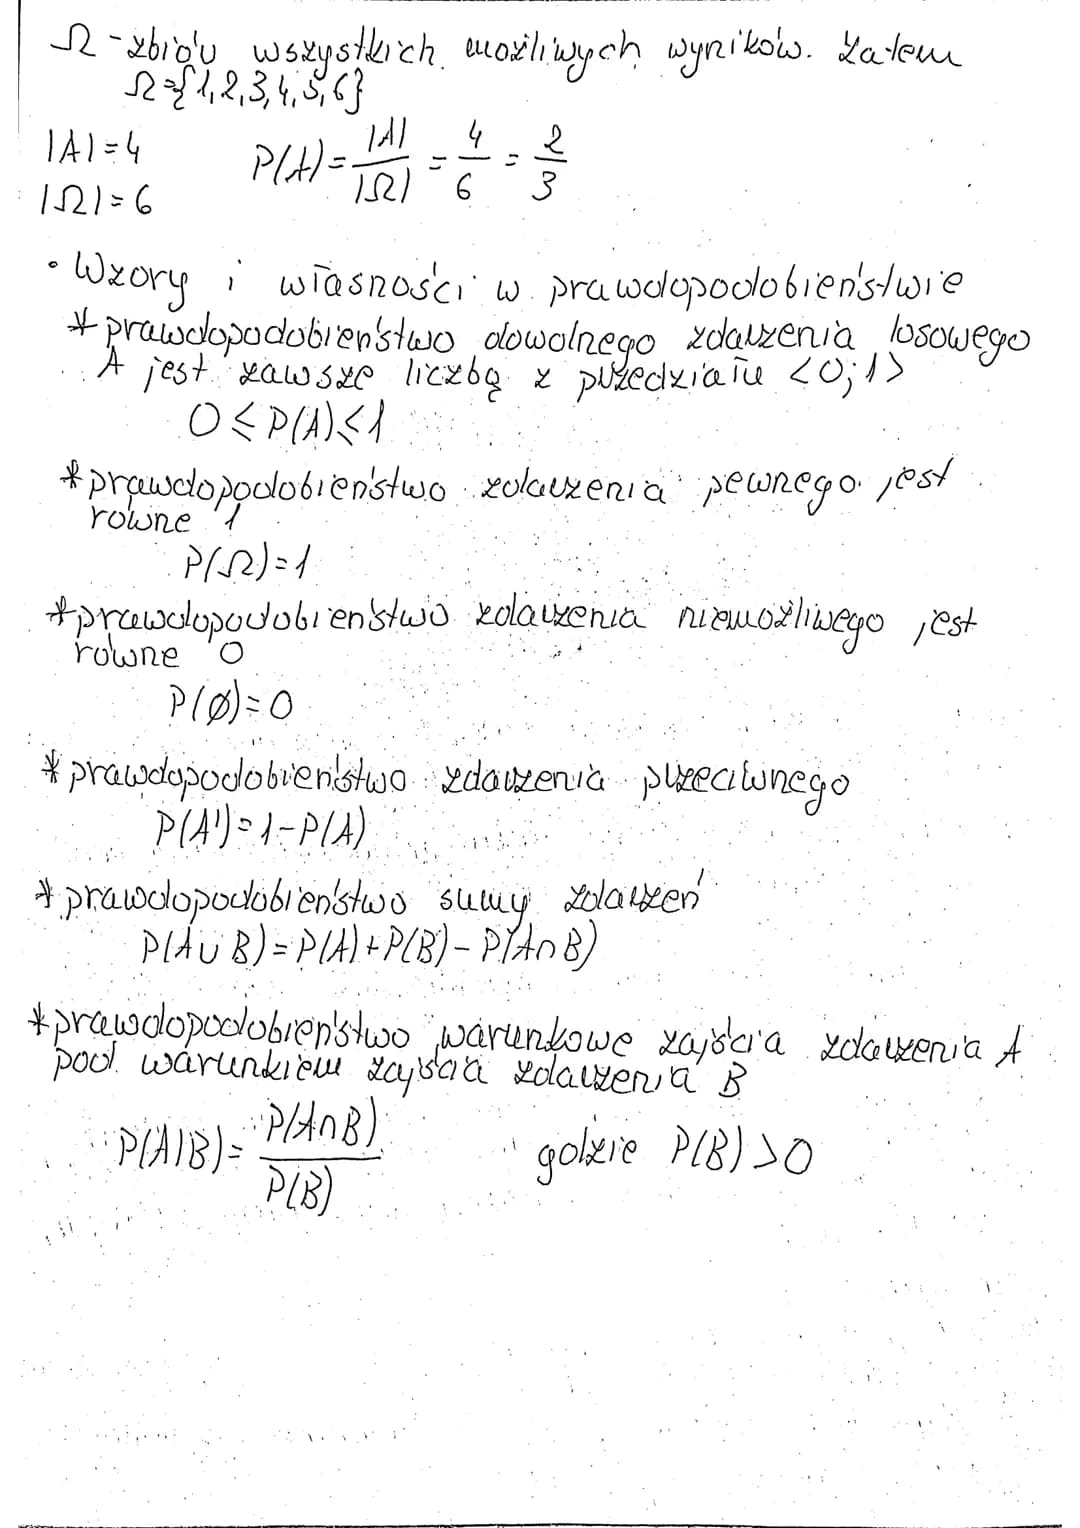 Ω - zbiór wszystkich możliwych wyników. Zatem
Ω={1,2,3,4,5,6}
|A|=4
P(A)=|A|/|Ω| = 4/6 = 2/3
|Ω|=6
• Wzory i własności w prawdopodobieństwie
* prawdopodobieństwo dowolnego zdarzenia losowego
A jest zawsze liczbą z przedziału <0;1>
0≤P(A)≤1
* prawdopodobieństwo zdarzenia pewnego jest
równe 1
P(Ω)=1
* prawdopodobieństwo zdarzenia niemożliwego jest
równe 0
P(Ø)=0
* prawdopodobieństwo zdarzenia przeciwnego
P(A')=1-P(A)
* prawdopodobieństwo sumy zdarzeń
P(A∪B)=P(A)+P(B)-P(A∩B)
* prawdopodobieństwo warunkowe zajścia zdarzenia A
pod warunkiem zajścia zdarzenia B
P(A|B)=P(A∩B)/P(B) gdzie P(B)>0